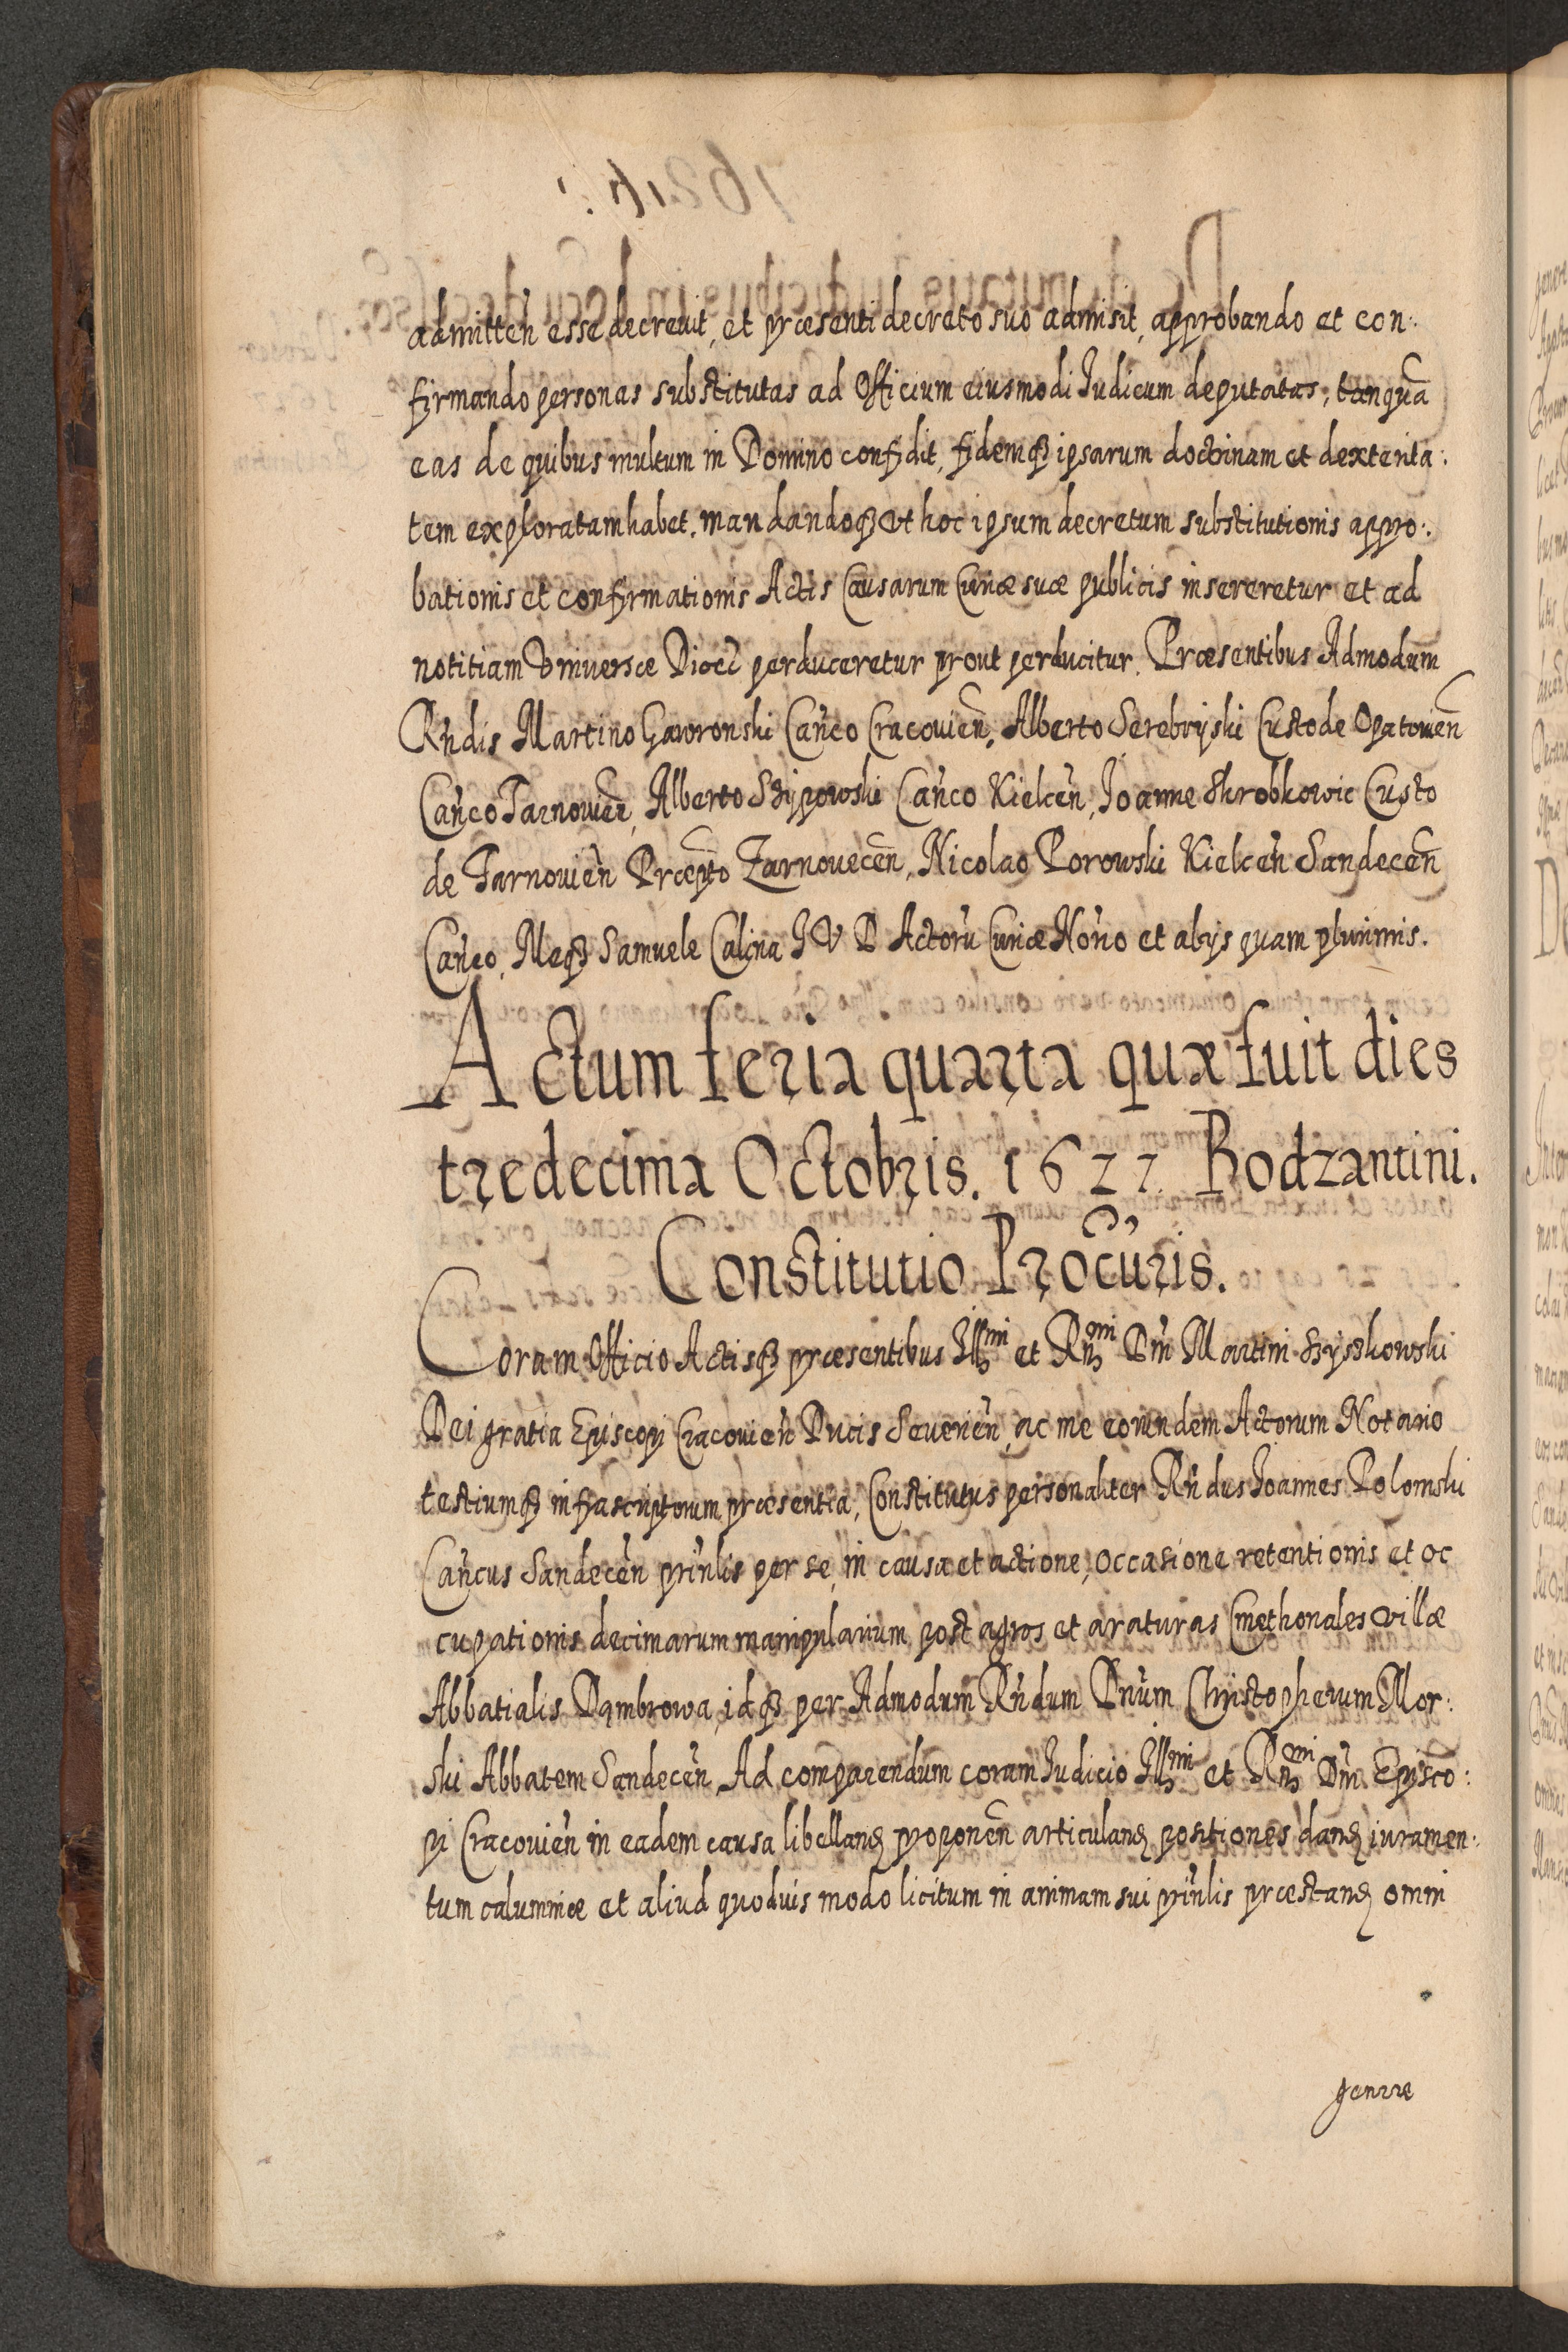 admitteñ esse decreuit, et præsenti decreto suo admisit, approbando et con:
firmando personas substitutas ad Officium eiusmodi Iudicum deputatas, tanquã
eas de quibus multum in Domino confidit, fidemqꝫ ipsarum doctrinam et dexterita:
tem exploratam habet. mandandoqꝫ vt hoc ipsum decretum substitutionis appro:
bationis et confirmationis Actis Causarum Curiæ suæ publicis insereretur et ad
notitiam Vniuersæ Diœc̃ perduceretur prout perducitur. Præsentibus Admodum
Rñdis Martino Gawronski Cañco Cracouieñ, Alberto Serebryski Custode Opatouieñ
Cañco Tarnouieñ, Alberto Stypowski Cañco Kielceñ, Ioanne Skrobkowic Custo
de Tarnouieñ Præpto Zarnoueceñ, Nicolao Porowski Kielceñ Sandeceñ
Cañco, Meqꝫ Samuele Calina I V D Actorũ Curiæ Noriõ et alijs quam plurimis.
Actum feria quarta quæ fuit dies
tredecima Octobris. 1627. Bodzantini.
Constitutio Procũris.
Coram Officio Actisqꝫ præsentibus Illmi et Rñmi Dñi Martini Szyszkowski
Dei gratia Episcopi Cracouieñ Ducis Seuerieñ, ac me eorundem Actorum Notario
testiumqꝫ infrascriptorum præsentia, Constitutus personaliter Rñdus Ioannes Polomski
Cañcus Sandeceñ prinlis per se, in causa et actione, occasione retentionis et oc
cupationis decimarum manipularium post agros et araturas Cmethonales villæ
Abbatialis Dąmbrowa, idqꝫ per Admodum Rñdum Dnũm Christopherum Mor:
ski Abbatem Sandeceñ, Ad comparendum coram Iudicio Illmi et Rñmi Dñi Episco:
pi Cracouieñ in eadem causa libelland proponeñ articuland positiones dand iuramen:
tum calumniæ et aliud quoduis modo licitum in animam sui prinlis præstand omni